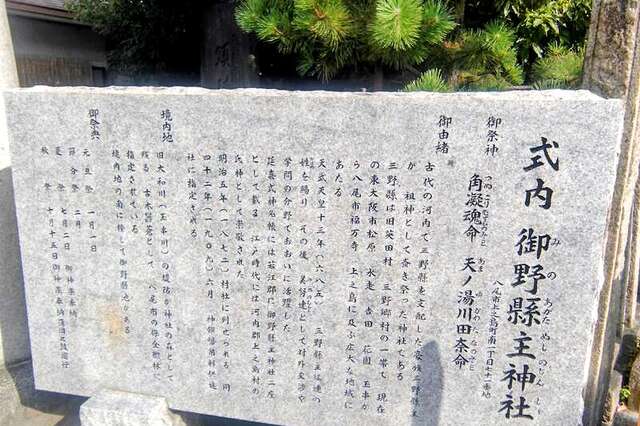 式内 御野縣主神社
みの あがた ぬし の じん しゃ
八尾市上之島町南一丁目七十一番地
御祭神
角凝魂命 天ノ湯川田奈命
御由緒
古代の河内で三野縣を支配した豪族三野縣主
が 祖神として斎き祭った神社である
三野縣は旧英田村 三野郷村の一帯で 現在
の東大阪市松原 水走 吉田 花園 玉串か
ら八尾市福万寺 上之島に及ぶ広大な地域に
あたる
天武天皇十三年(六八五) 三野縣主は連の
姓を賜り その後 美努連として対外交渉や
学問の分野でおおいに活躍した
延喜式神名帳には若江郡に御野縣主神社二座
として載る 江戸時代には河内郡上之島村の
氏神として崇敬された
明治五年(一八七二)村社に列せられる 同
四十二年(一九〇九)六月 神饌幣帛料供進
社に指定される
境内地
旧大和川(玉串川)の堤防が神社の森として
残る 古木翳蒼として 八尾市の保全樹林に
指定されている
境内地の南に接して御野縣池がある
御祭典
元旦祭 一月一日
節分祭 二月
夏祭 七月二日 御神楽奉納
秋祭 十月十五日御神楽奉納